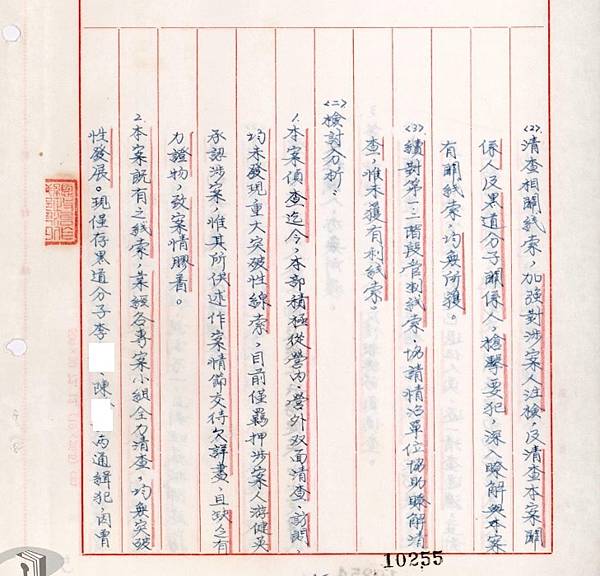 (2)清查相關線索，加強對涉案人注檢，及清查本案關
係人及黑道分子關係人，檢擊要犯，深入瞭解與本案
有關線索，均無所獲。
(3)續對第一、二階段管制線索，協請情治單位協助瞭解清
查，惟未獲有利線索。
(二)檢討分析：
1.本案偵查迄今，本部積極從營內、營外双面清查、訪問，
均未發現重大突破性線索，目前僅羈押涉案人游健英
承認涉案，惟其所供述作案情節交待欠詳盡，且缺乏有
力證物，致案情膠着。
2.本案既有之線索，業經各專案小組全力清查，均無突破
性發展。現僅存黑道分子李　、陳　兩通緝犯，因曾
10255